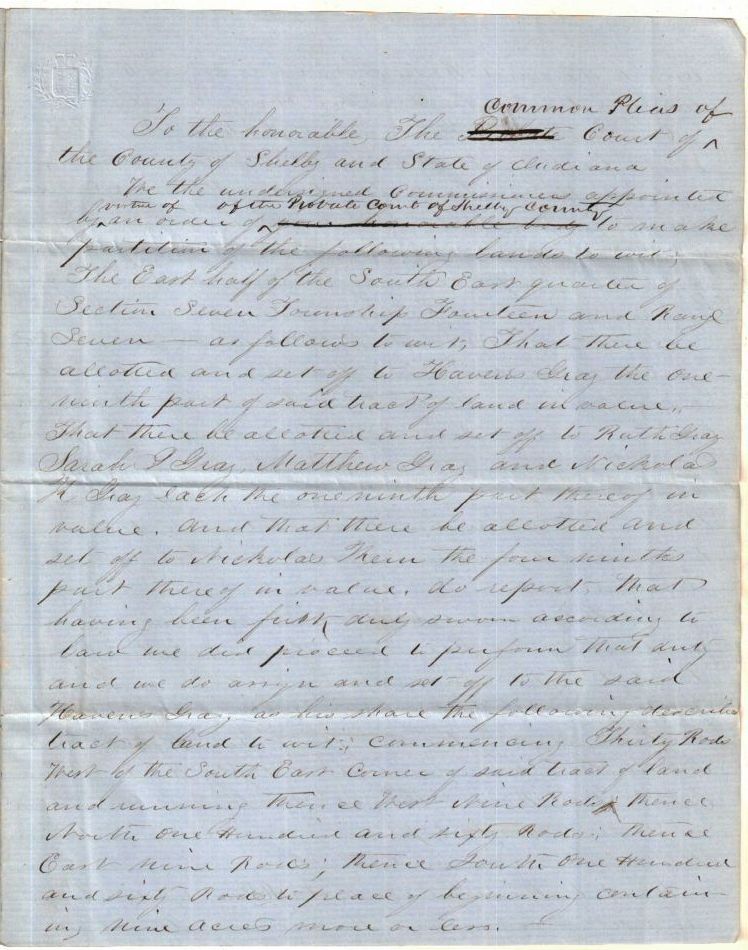 Common Pleas of
To the honorable, The Court of ^
the County of Shelby and State of Indiana
We the undersigned Commissioners appointed
virtue of of the Probate Court of Shelby County
by ^ an order of ^ your honorable body to make
partition of the following lands to wit;
The East half of the South East quarter of
Section Seven Township Fourteen and Rang
Seven — as follows to wit, That there be
allotted and set off to Havens Gray the one
ninth part of said tract of land in value,
That there be allotted and set off to Ruth Gray
Sarah Gray, Matthew Gray and Nickolas
H Gray each the one ninth part thereof in
value. And that there be allotted and
set off to Nickolas the four ninth
part thereof in value. do report, that
having been first, duly sworn according to
law we did proceed to perform that duty
and we do assign and set off to the said
Havens Gray, as his share the following describe
tract of land to wit; Commencing Thirty Rods
West of the South East Corner of said tract of land
and running thence West Nine Rods, thence
North One Hundred and sixty Rods; thence
East Nine Rods; thence South One Hundred
and sixty Rods to place of beginning contain
ing Nine Acres more or less. —